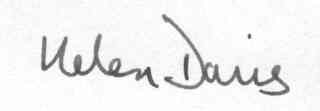 Helen Davies